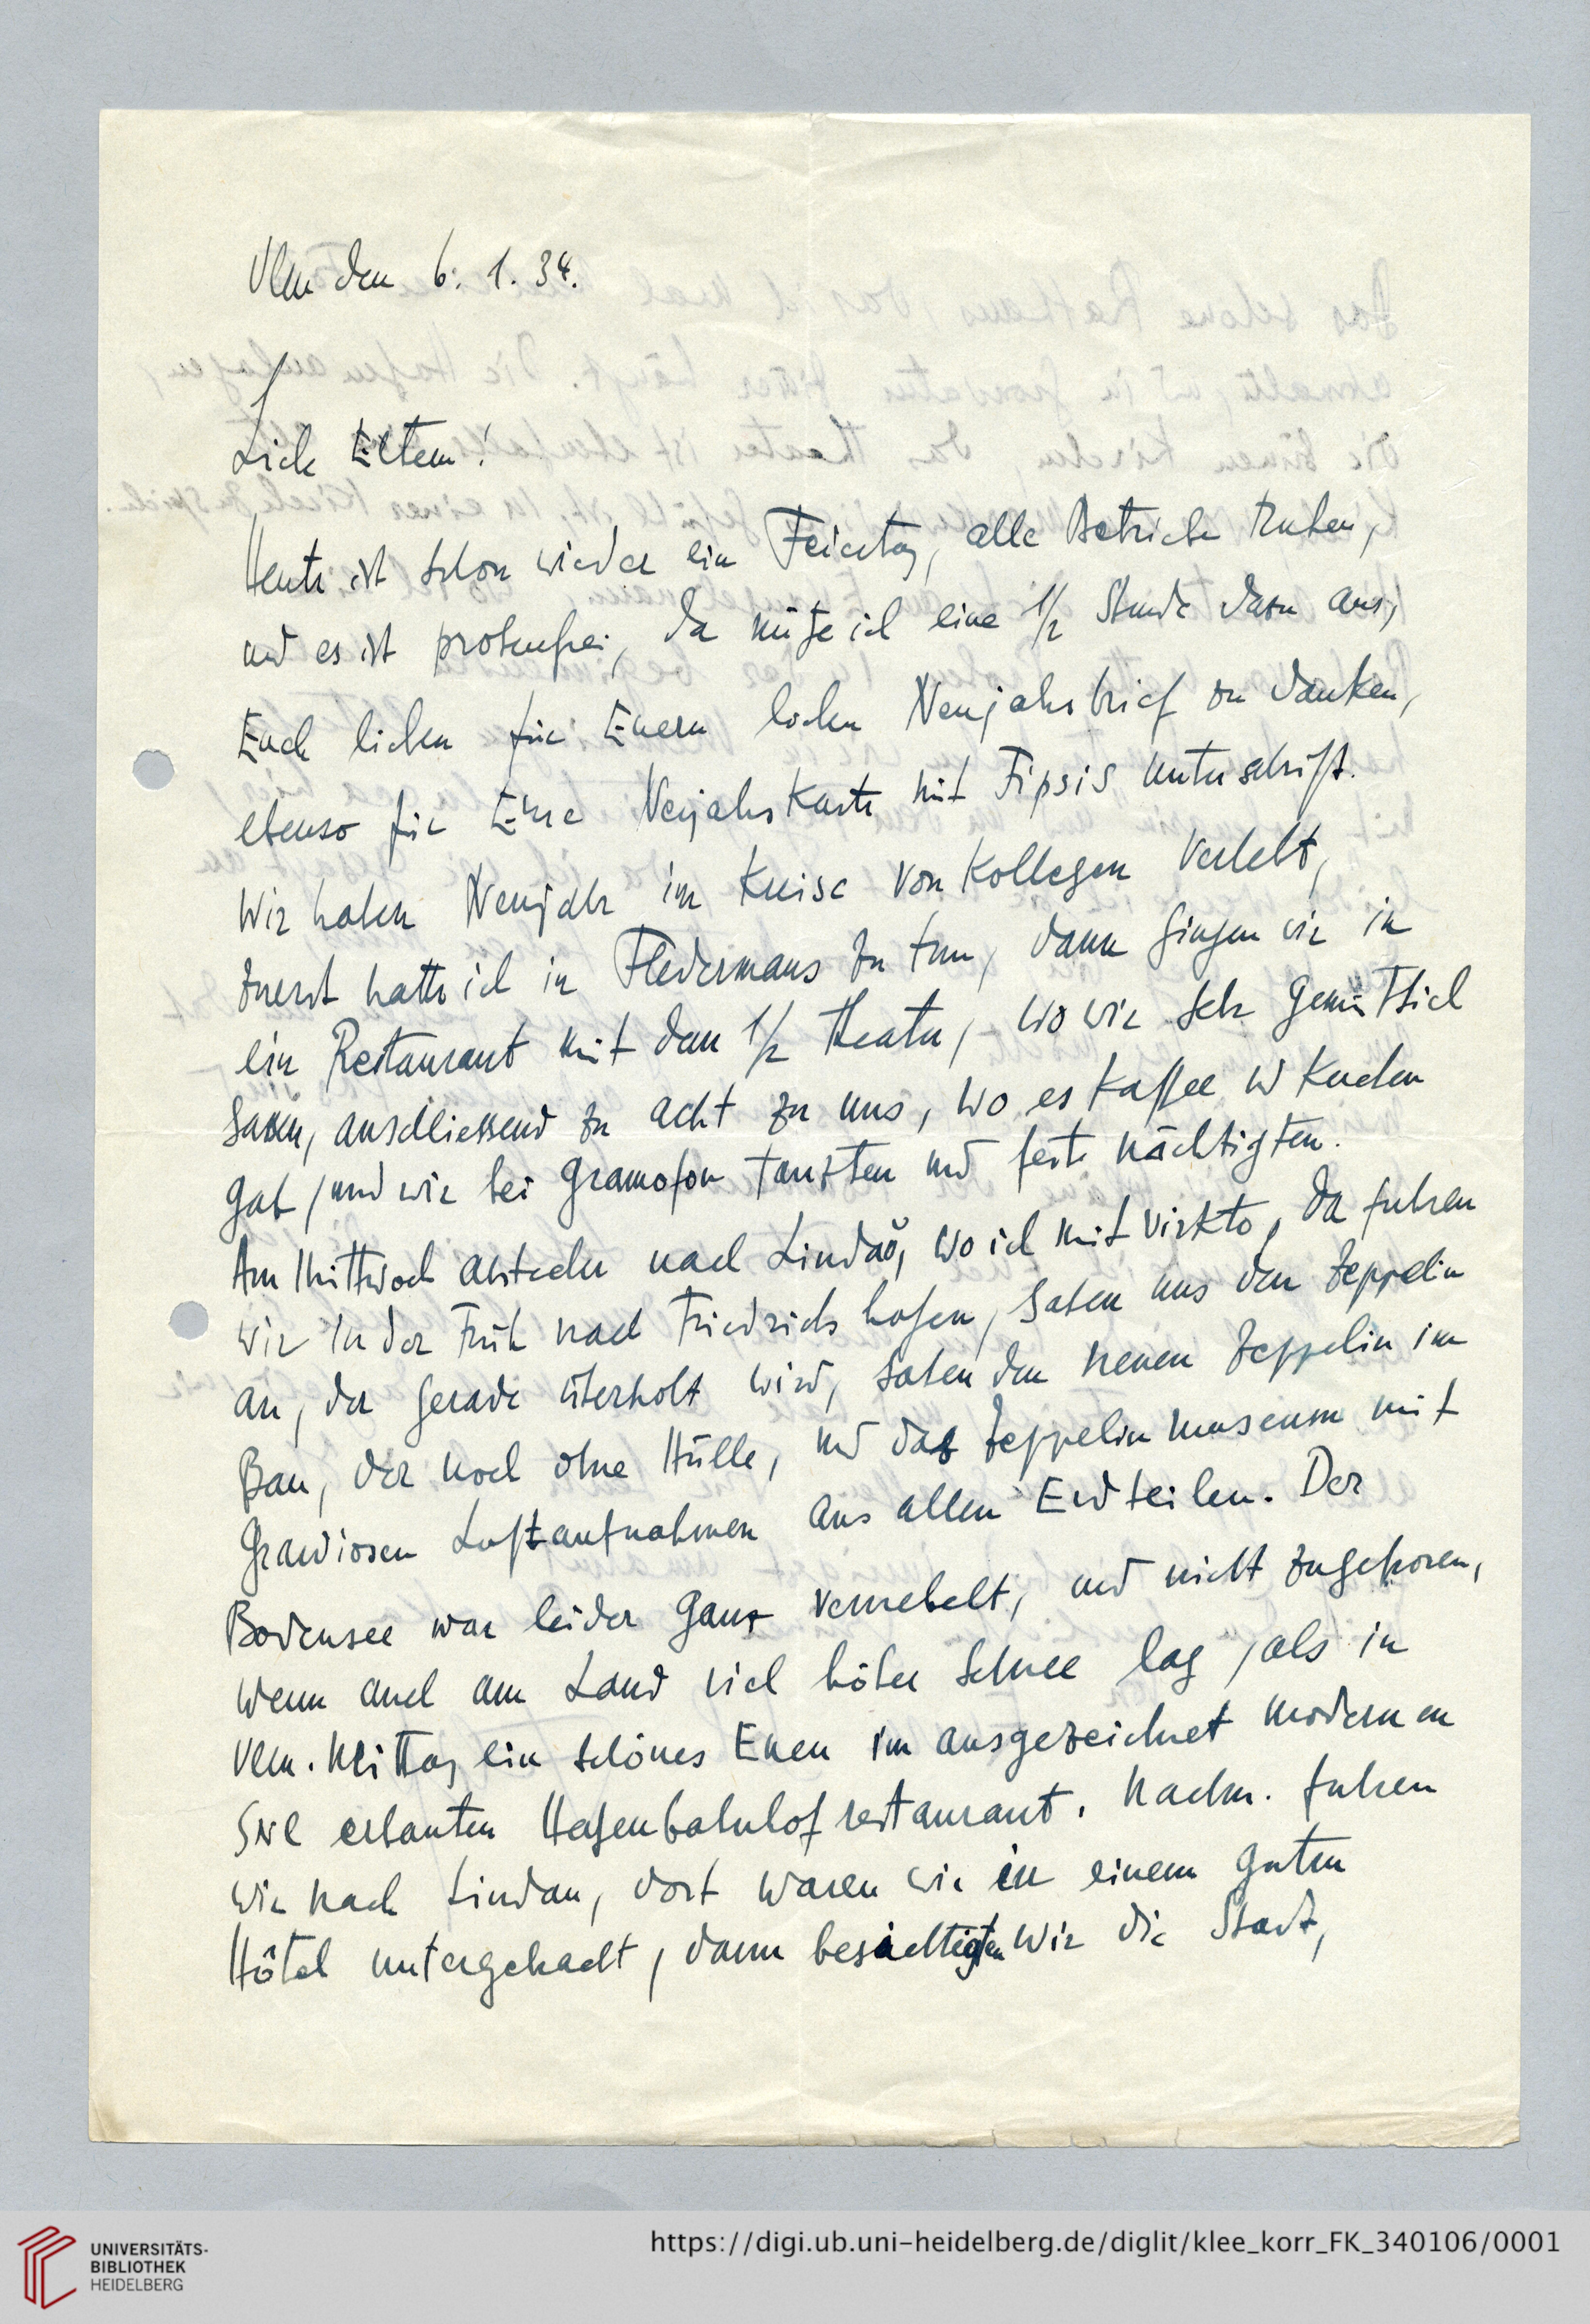 Ulm den 6. 1. 34.
Liebe Eltern!
Heute ist schon wieder ein Feiertag, alle Betriebe ruhen,
und es ist probenfrei, da nütze ich eine 1/2 Stunde dazu aus,
Euch lieben für Euern lieben Neujahrsbrief zu danken,
ebenso für Eure Neujahrskarte mit Fipsis Unterschrift.
Wir haben Neujahr im Kreise von Kollegen verlebt,
zuerst hatte ich in Fledermaus zu tun, dann gingen wir in
ein Restaurant mit dem 1/2 Theater, wo wir sehr gemütlich
sassen, anschliessend zu acht zu uns, wo es Kaffee u Kuchen
gab, und wir bei Gramofon tanzten und feste nächtigten.
Am Mittwoch Abstecher nach Lindau, wo ich mit , da fuhren
wir in der Früh nach Friedrichshafen, sahen uns den Zeppelin
an, der gerade überholt wird, sahen den neuen Zeppelin im
Bau, der noch ohne Hülle, und das Zeppelinmuseum mit
grandiosen Luftaufnahmen aus allen Erdteilen. Der
Bodensee war leider ganz vernebelt, und nicht zugefroren,
wenn auch am Land viel höher Schnee lag, als in
Ulm. Mittag ein schönes Essen im ausgezeichnet modernen
erbauten Hafenbahnhofrestaurant. Nachm. fuhren
wir nach Lindau, dort waren wir in einem guten
Hôtel untergebracht, dann besichtigten wir die Stadt,
UNIVERSITÄTS-
BIBLIOTHEK
HEIDELBERG
https://digi.ub.uni-heidelberg.de/diglit/klee_korr_FK_340106/0001